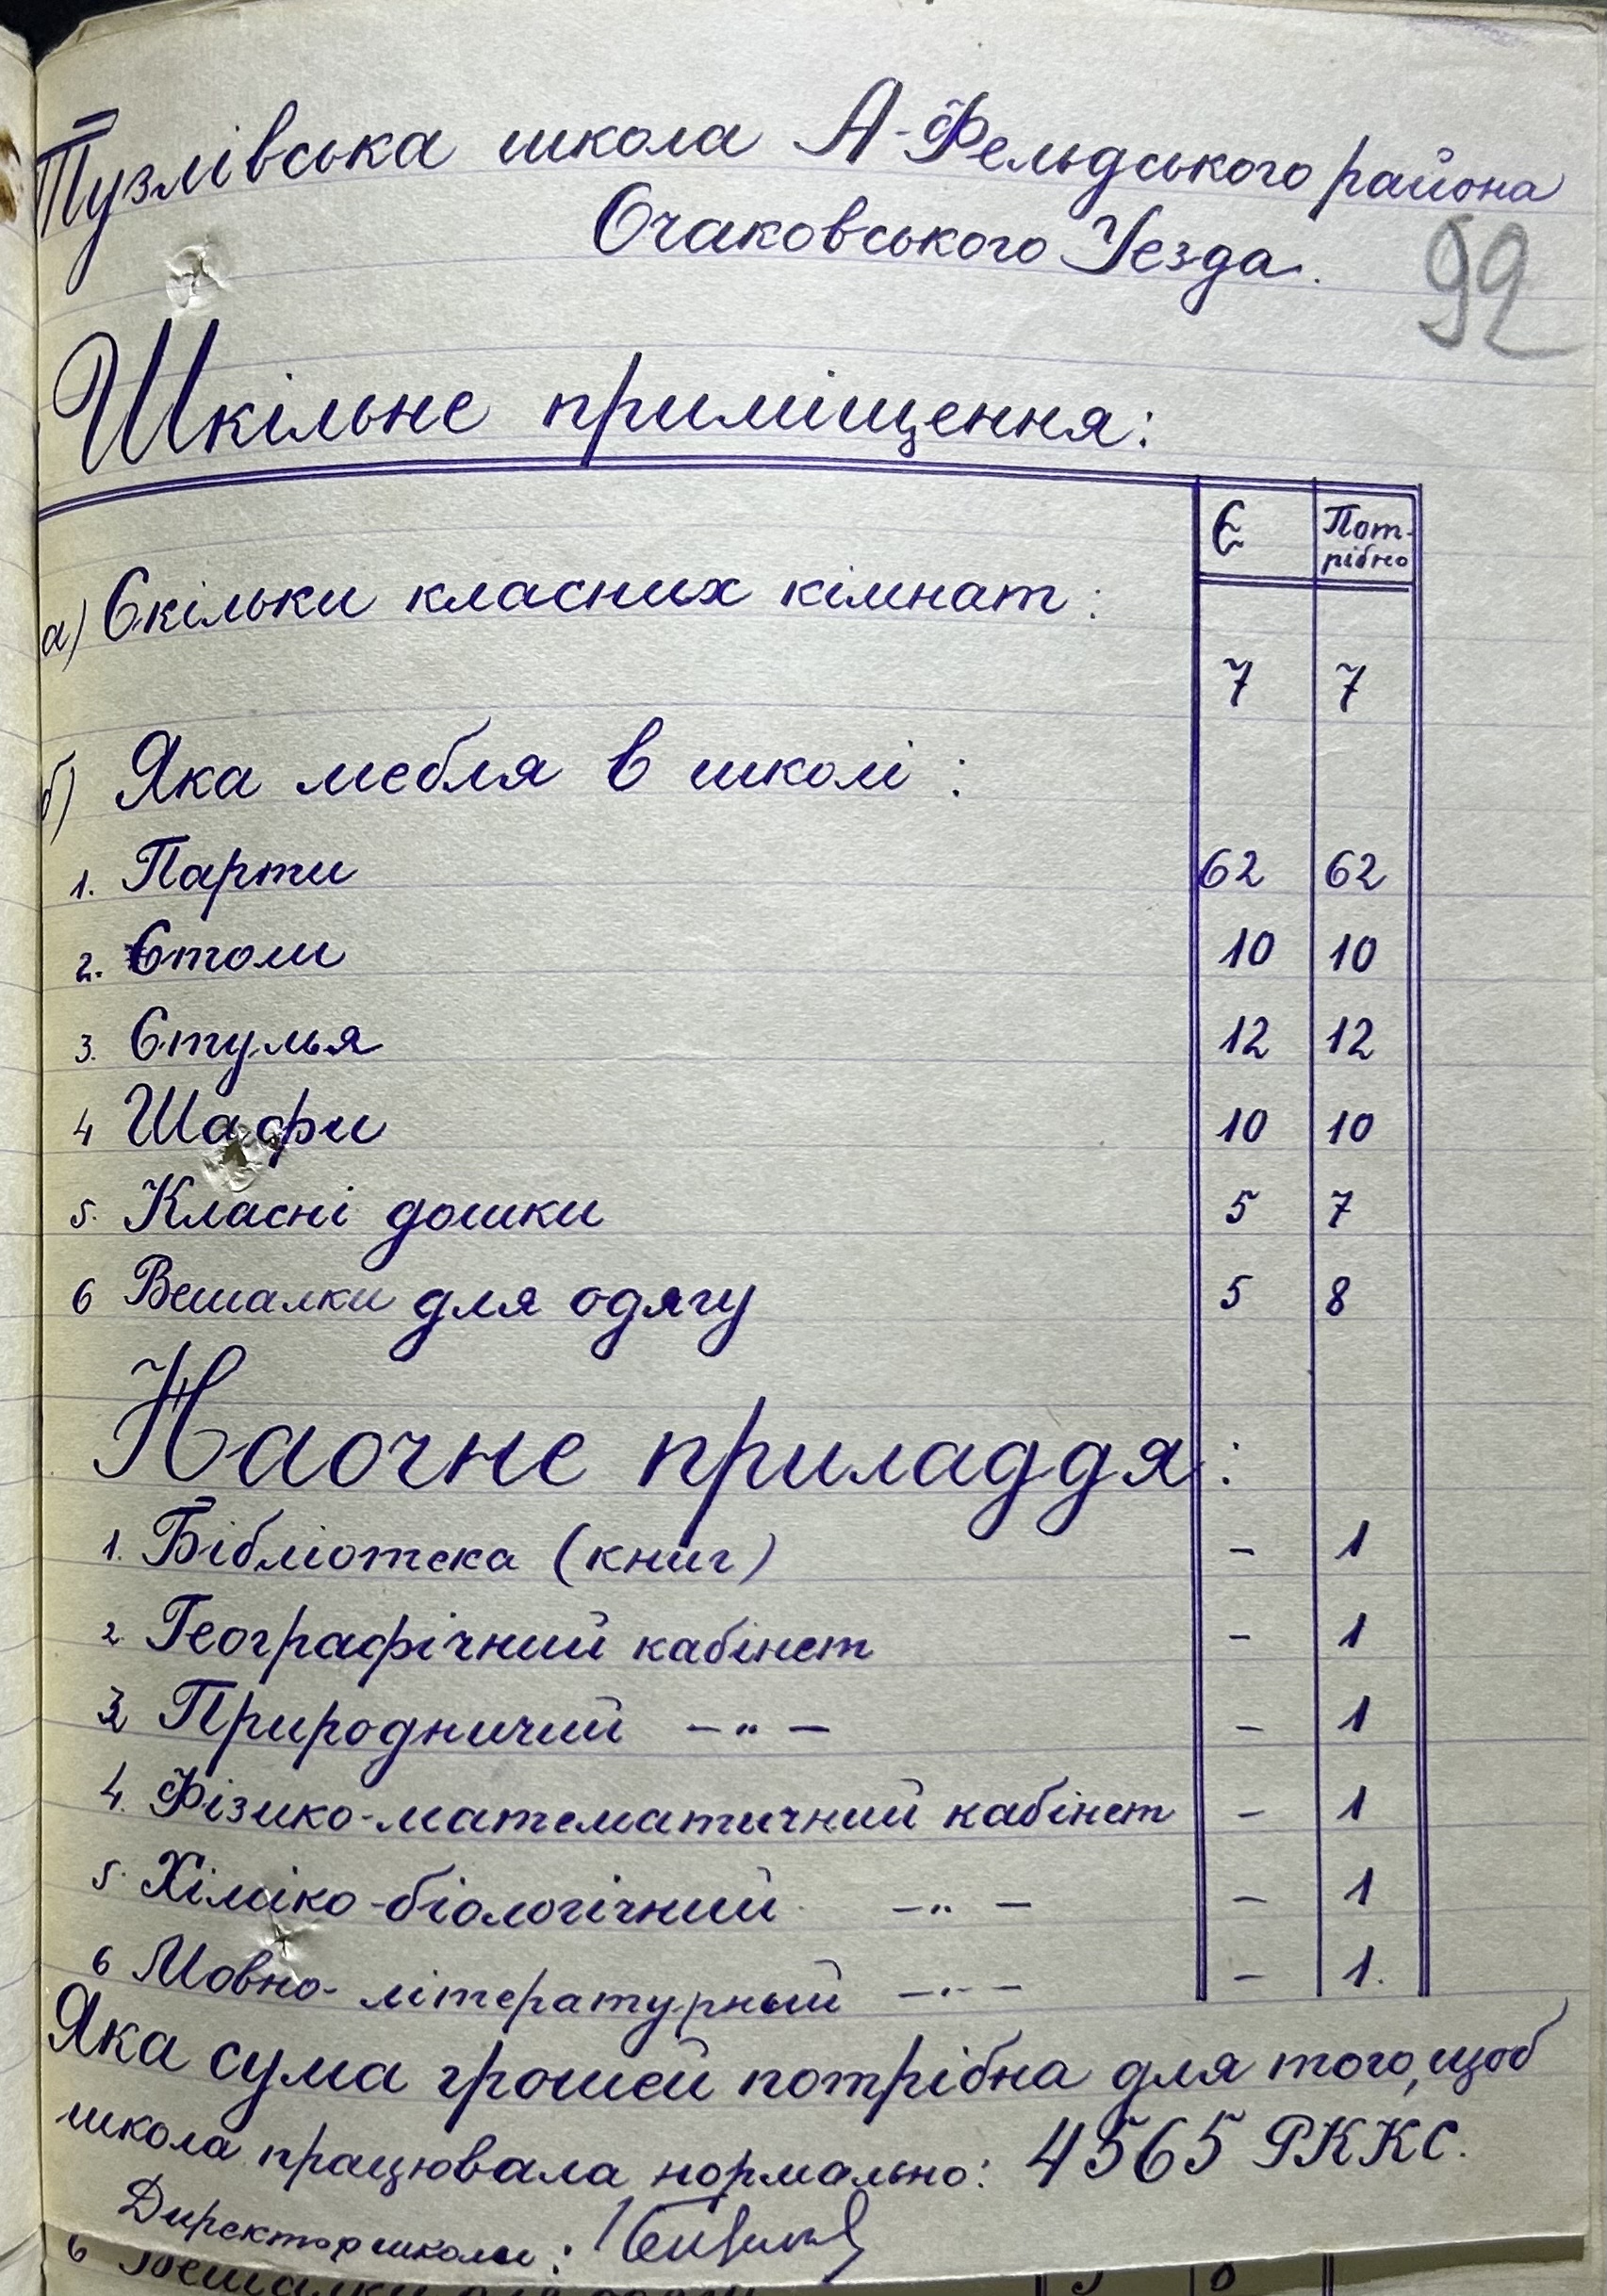 Тузлівська школа А-Фельдського района
Очаковського Уезда.
92
Шкільне приміщення:
Є Пот-
рібно
а) Скільки класних кімнат:
7 7
б) Яка мебля в школі:
1. Парти 62 62
2. Столи 10 10
3. Стулья 12 12
4 Шафи 10 10
5. Класні дошки 5 7
6 Вешалки для одягу 5 8
Наочне приладдя:
1. Бібліотека (книг) – 1
2. Географічний кабінет – 1
3 Природничий –„– – 1
4. Фізико-математичний кабінет – 1
5. Хіміко-біологічний –„– – 1
6 Мовно-літературный –„– – 1.
Яка сума грошей потрібна для того, щоб
школа працювала нормально: 4565 РККС.
Директор школи:
6 Вешалки для одягу 5 8